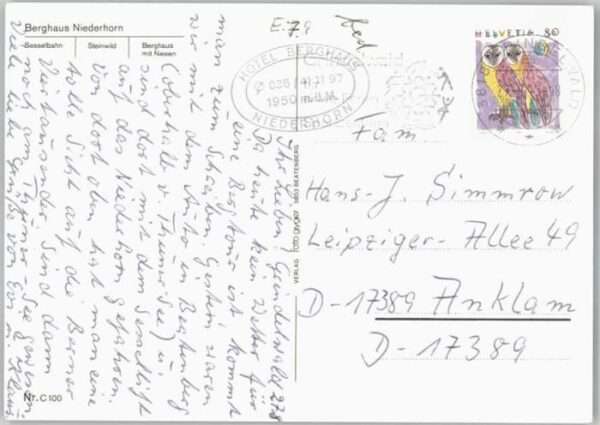 Berghaus Niederhorn
Sesselbahn
Steinwild
Berghaus
mit Niesen
E. 79
HELVETIA 80
HOTEL BERGHAUS
036 41 11 97
1950 m.ü.M.
NIEDERHORN
GRINDELWALD
Fam.
Hans-J. Simmrow
Leipziger-Allee 49
D-17389 Anklam
D-17389
Ihr Lieben! Grindelwald 27.8
Da heute kein Wetter für
eine Bergtour ist kommt
man zum Schreiben. Gestern waren
wir mit dem Auto in Beatenberg
(oberhalb v. Thuner See) u.
sind dort mit dem Sessellift
auf das Niederhorn gefahren.
Von dort oben hat man eine
tolle Sicht auf die Berner
Viertausender. Sind dann
noch am Thuner-See gewesen.
Viele liebe Grüße von
VERLAG
3803 BEATENBERG
Nr. C 100